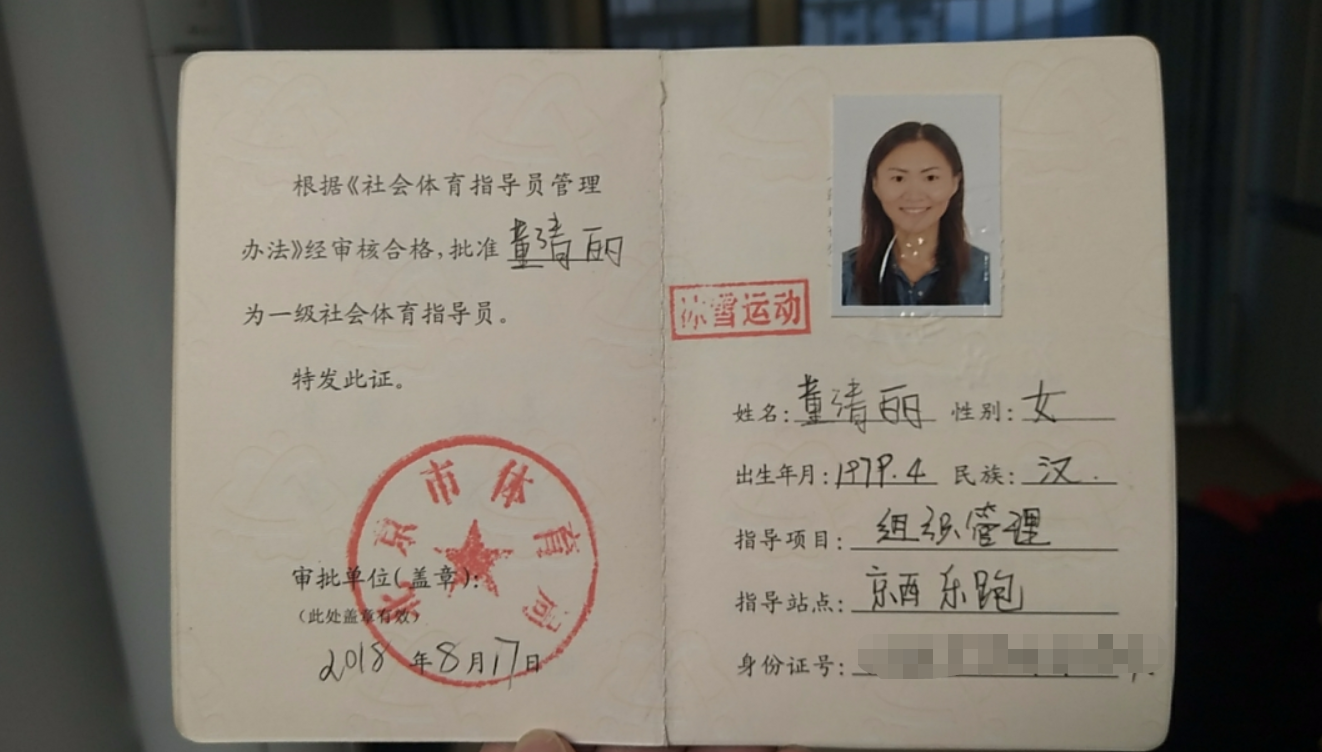 根据《社会体育指导员管理
办法》经审核合格,批准 董清丽
为一级社会体育指导员。
特发此证。
北京市体育局
审批单位(盖章):
(此处盖章有效)
2018 年 8 月 17 日
冰雪运动
姓名: 董清丽 性别: 女
出生年月: 1979.4 民族: 汉.
指导项目: 组织管理
指导站点: 京西乐跑
身份证号: